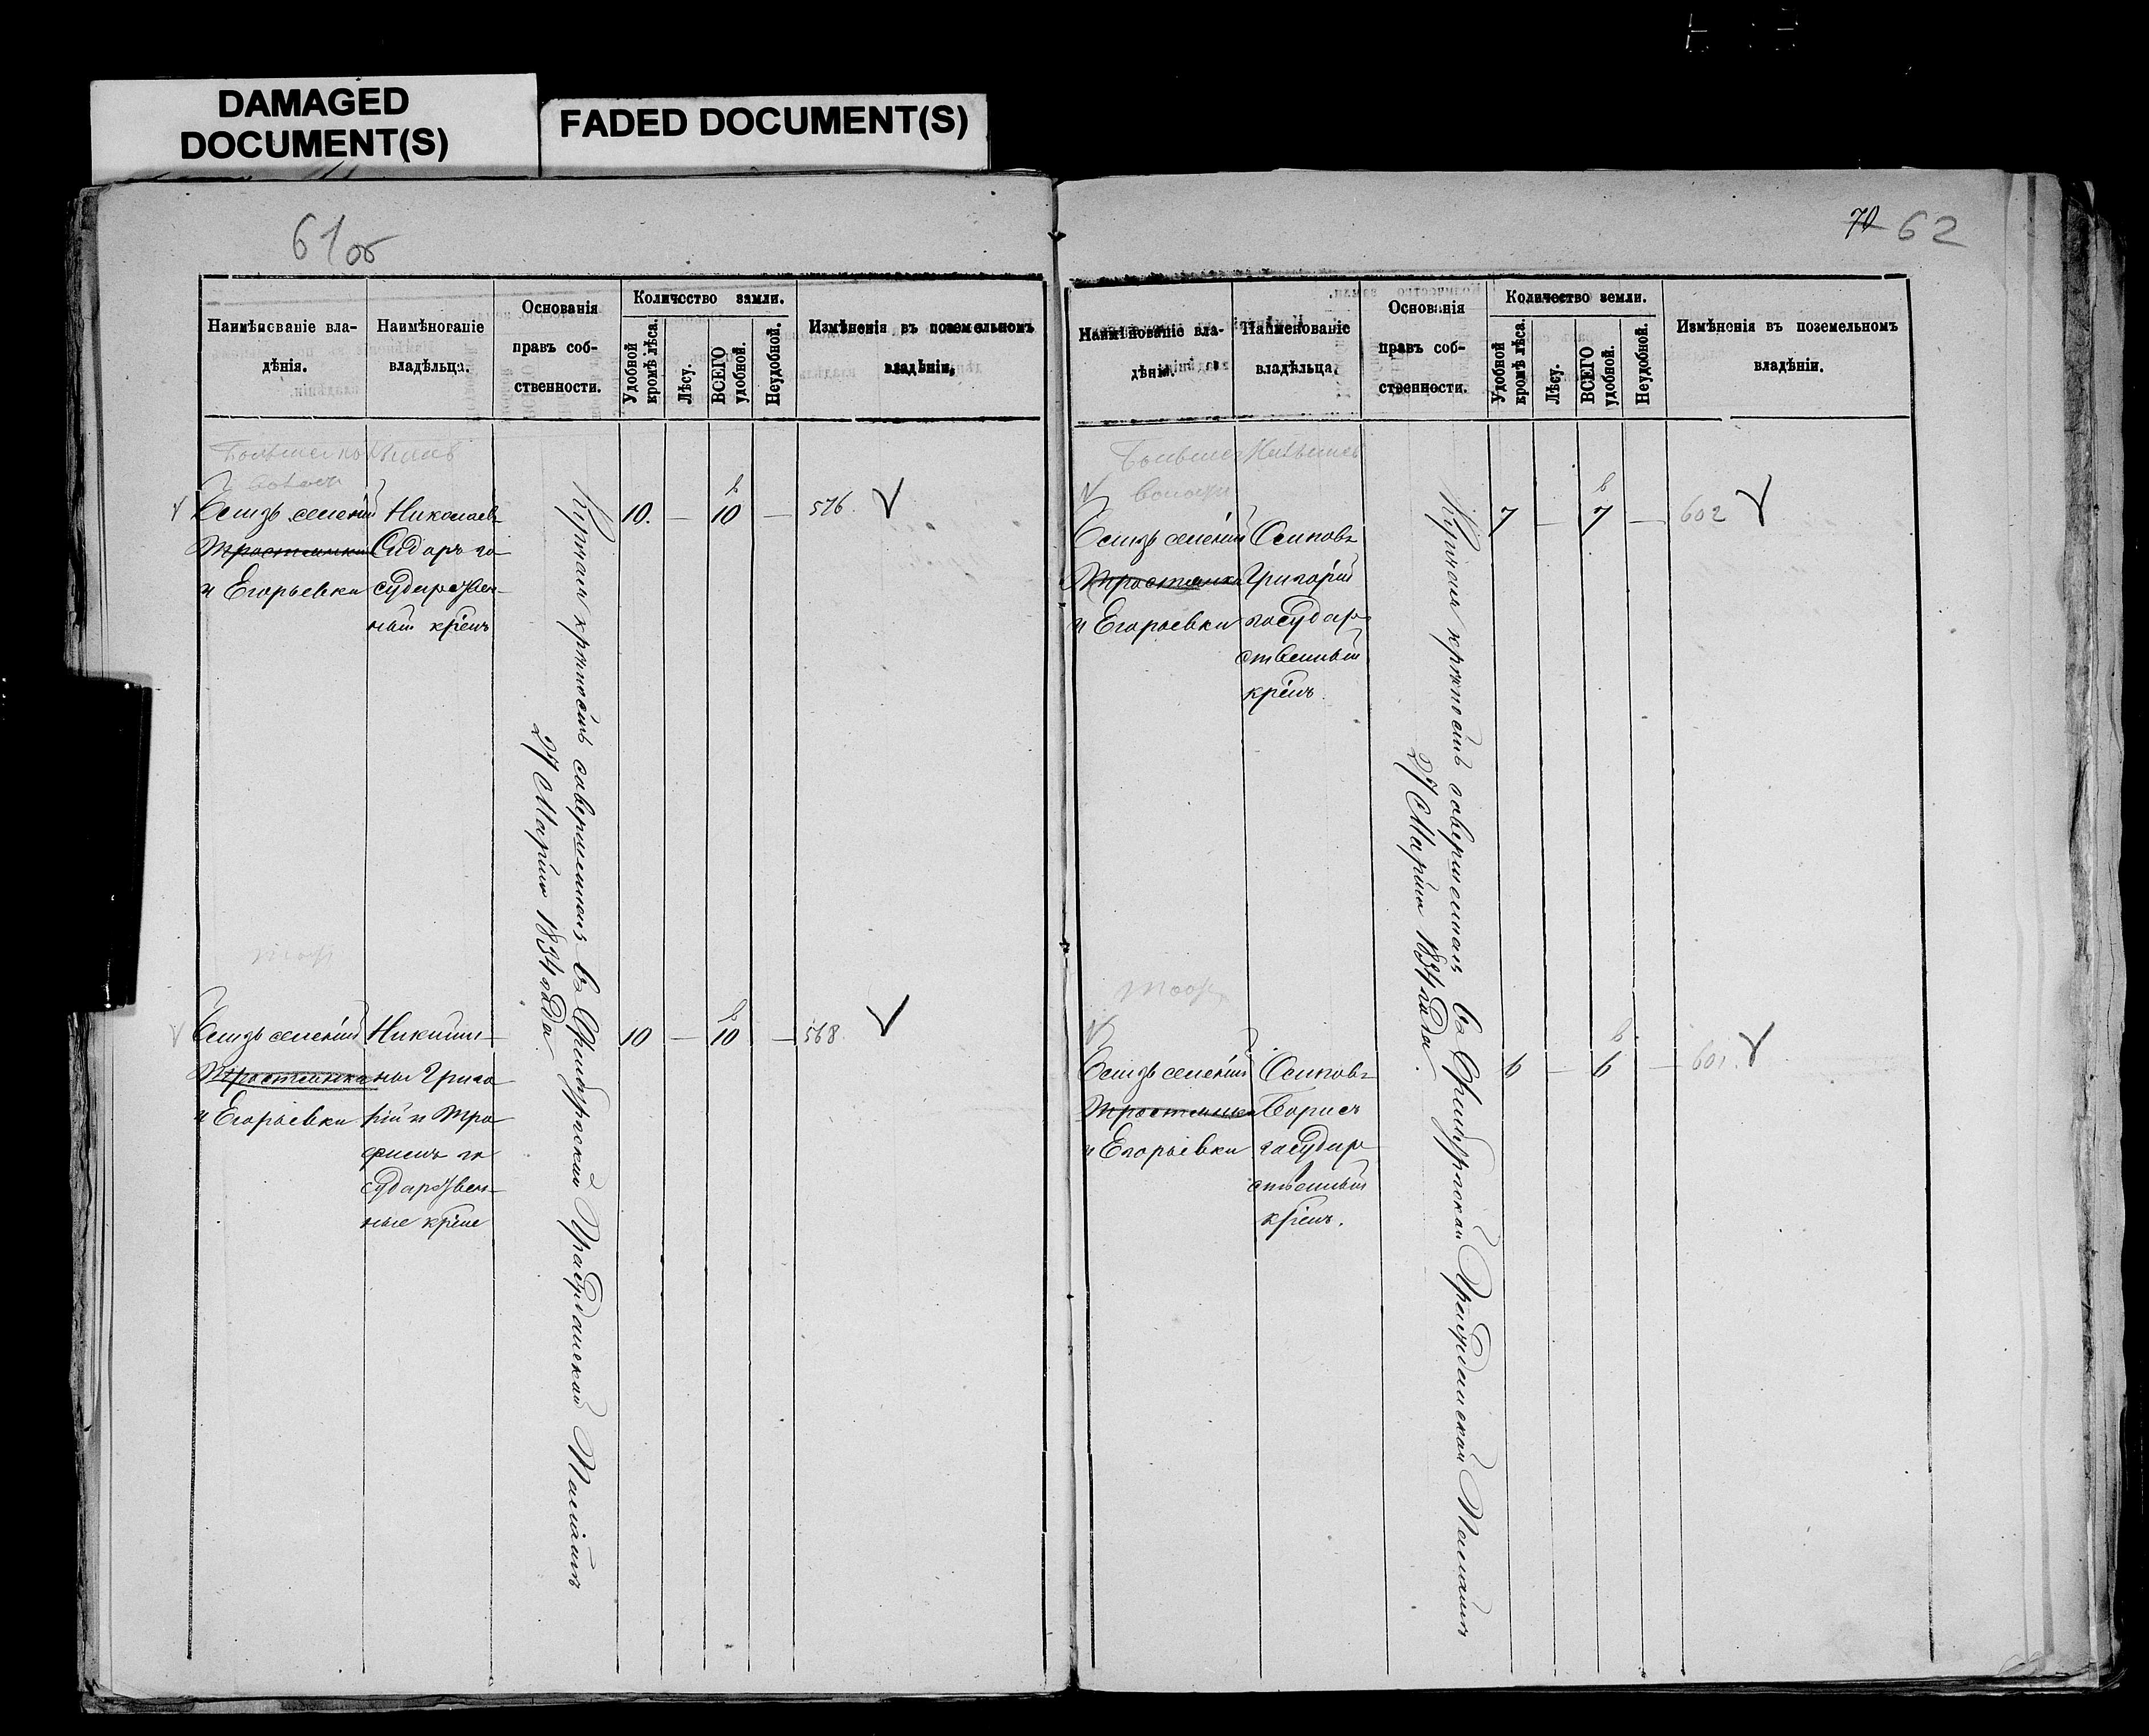 DAMAGED
DOCUMENT(S)
FADED DOCUMENT(S)
61об
Наимѣнсваніе вла-
дѣнія.
Наимѣноганіе
владѣльца.
Основанія
правъ соб-
ственности.
Количество земли.
Удобной
кромѣ лѣса.
Лѣсу.
ВСЕГО
удобной.
Неудобной.
Измѣненія въ поземельномъ
владѣніи,
Близь селеній
Тростянки
и Егорьевки
Николаевъ
Сидоръ го-
сударствен-
ный крест
10. — 10 — 576
Купчая крѣпость совершенная въ Оренбургской Гражданской Палатѣ
27 Марта 1834 года.
Близь селеній
Тростянки
и Егорьевки
Никити-
ны Григо
рій и Тро
фимъ го
сударствен-
ные крест
10 — 10 — 568.
70 62
Наимѣнованіе вла-
дѣнія.
Наименованіе
владѣльца
Основанія
правъ соб-
ственности.
Количество земли.
Удобной
кромѣ лѣса.
Лѣсу.
ВСЕГО
удобной.
Неудобной.
Измѣненія въ поземельномъ
владѣніи.
Близь селеній
Тростянки
и Егорьевки
Осиповъ
Григорій
государ
ственный
крест.
7 — 7 — 602
Купчая крѣпость совершенная въ Оренбургской Гражданской Палатѣ
27 Марта 1834 года.
Близь селеній
Тростянки
и Егорьевки
Осиповъ
Борисъ
государ
ственный
крест.
6 — 6 — 601.